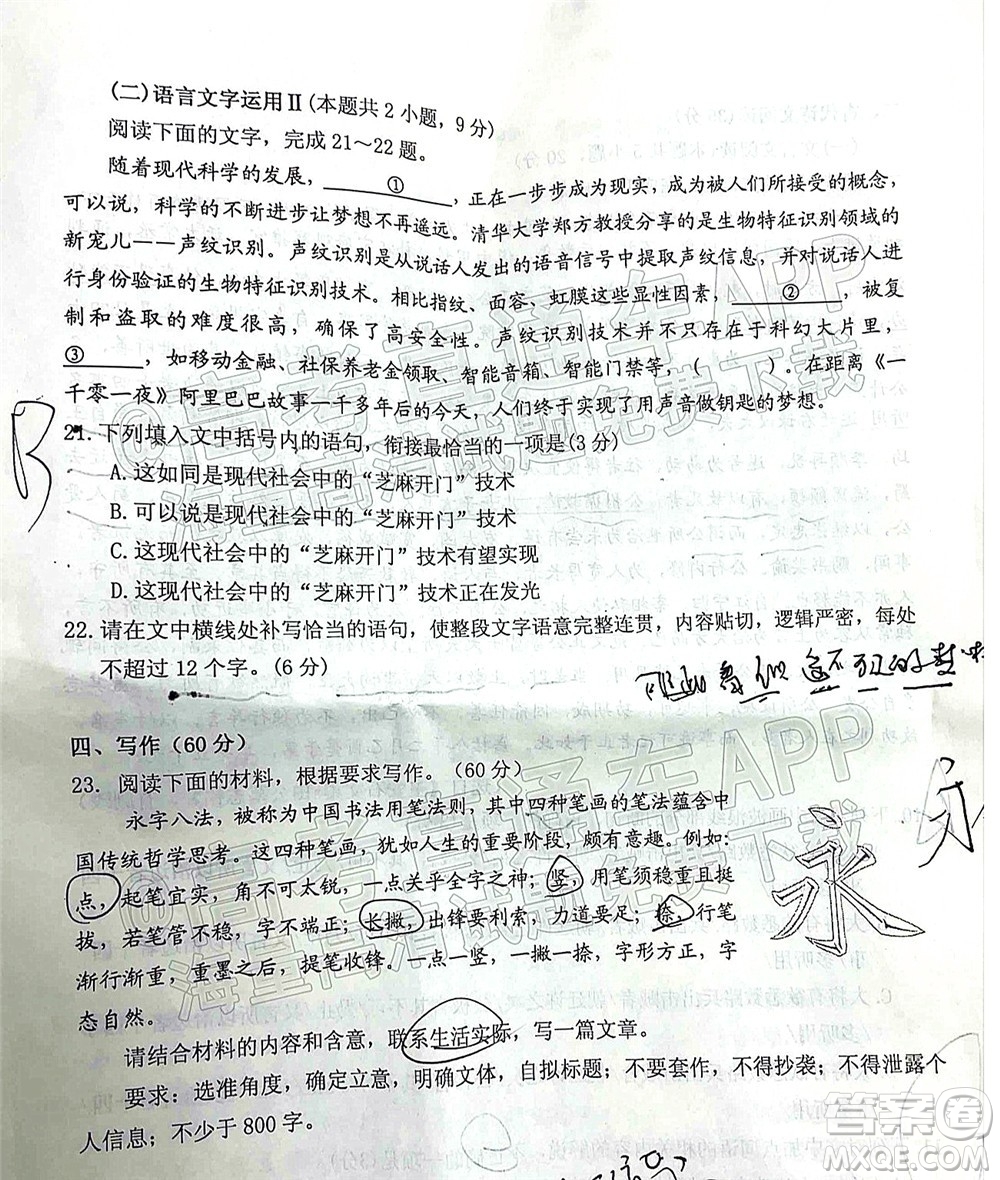 (二)语言文字运用Ⅱ(本题共2小题,9分)
阅读下面的文字,完成21~22题。
随着现代科学的发展,①,正在一步步成为现实,成为被人们所接受的概念,
可以说,科学的不断进步让梦想不再遥远。清华大学郑方教授分享的是生物特征识别领域的
新宠儿——声纹识别。声纹识别是从说话人发出的语音信号中提取声纹信息,并对说话人进
行身份验证的生物特征识别技术。相比指纹、面容、虹膜这些显性因素,②,被复
制和盗取的难度很高,确保了高安全性。声纹识别技术并不只存在于科幻大片里,
③,如移动金融、社保养老金领取、智能音箱、智能门禁等,( )。在距离《一
千零一夜》阿里巴巴故事一千多年后的今天,人们终于实现了用声音做钥匙的梦想。
B
21.下列填入文中括号内的语句,衔接最恰当的一项是(3分)
A.这如同是现代社会中的“芝麻开门”技术
B.可以说是现代社会中的“芝麻开门”技术
C.这现代社会中的“芝麻开门”技术有望实现
D.这现代社会中的“芝麻开门”技术正在发光
22.请在文中横线处补写恰当的语句,使整段文字语意完整连贯,内容贴切,逻辑严密,每处
不超过12个字。(6分)
四、写作(60分)
23. 阅读下面的材料,根据要求写作。(60分)
永字八法,被称为中国书法用笔法则,其中四种笔画的笔法蕴含中
国传统哲学思考。这四种笔画,犹如人生的重要阶段,颇有意趣。例如:
点,起笔宜实,角不可太锐,一点关乎全字之神;竖,用笔须稳重且挺
拔,若笔管不稳,字不端正;长撇,出锋要利索,力道要足;捺,行笔
渐行渐重,重墨之后,提笔收锋。一点一竖,一撇一捺,字形方正,仪
态自然。
永
请结合材料的内容和含意,联系生活实际,写一篇文章。
要求:选准角度,确定立意,明确文体,自拟标题;不要套作,不得抄袭;不得泄露个
人信息;不少于800字。
@高考直通车APP
海量高清试题免费下载
@高考直通车APP
海量高清试题免费下载
答案卷